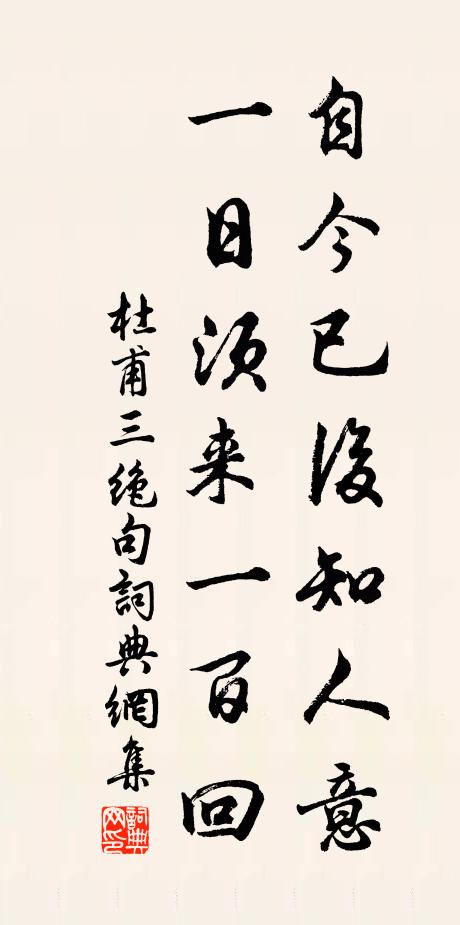 自今已後知人意
一日須来一百回
杜甫三绝句詞典網集
詞典網印